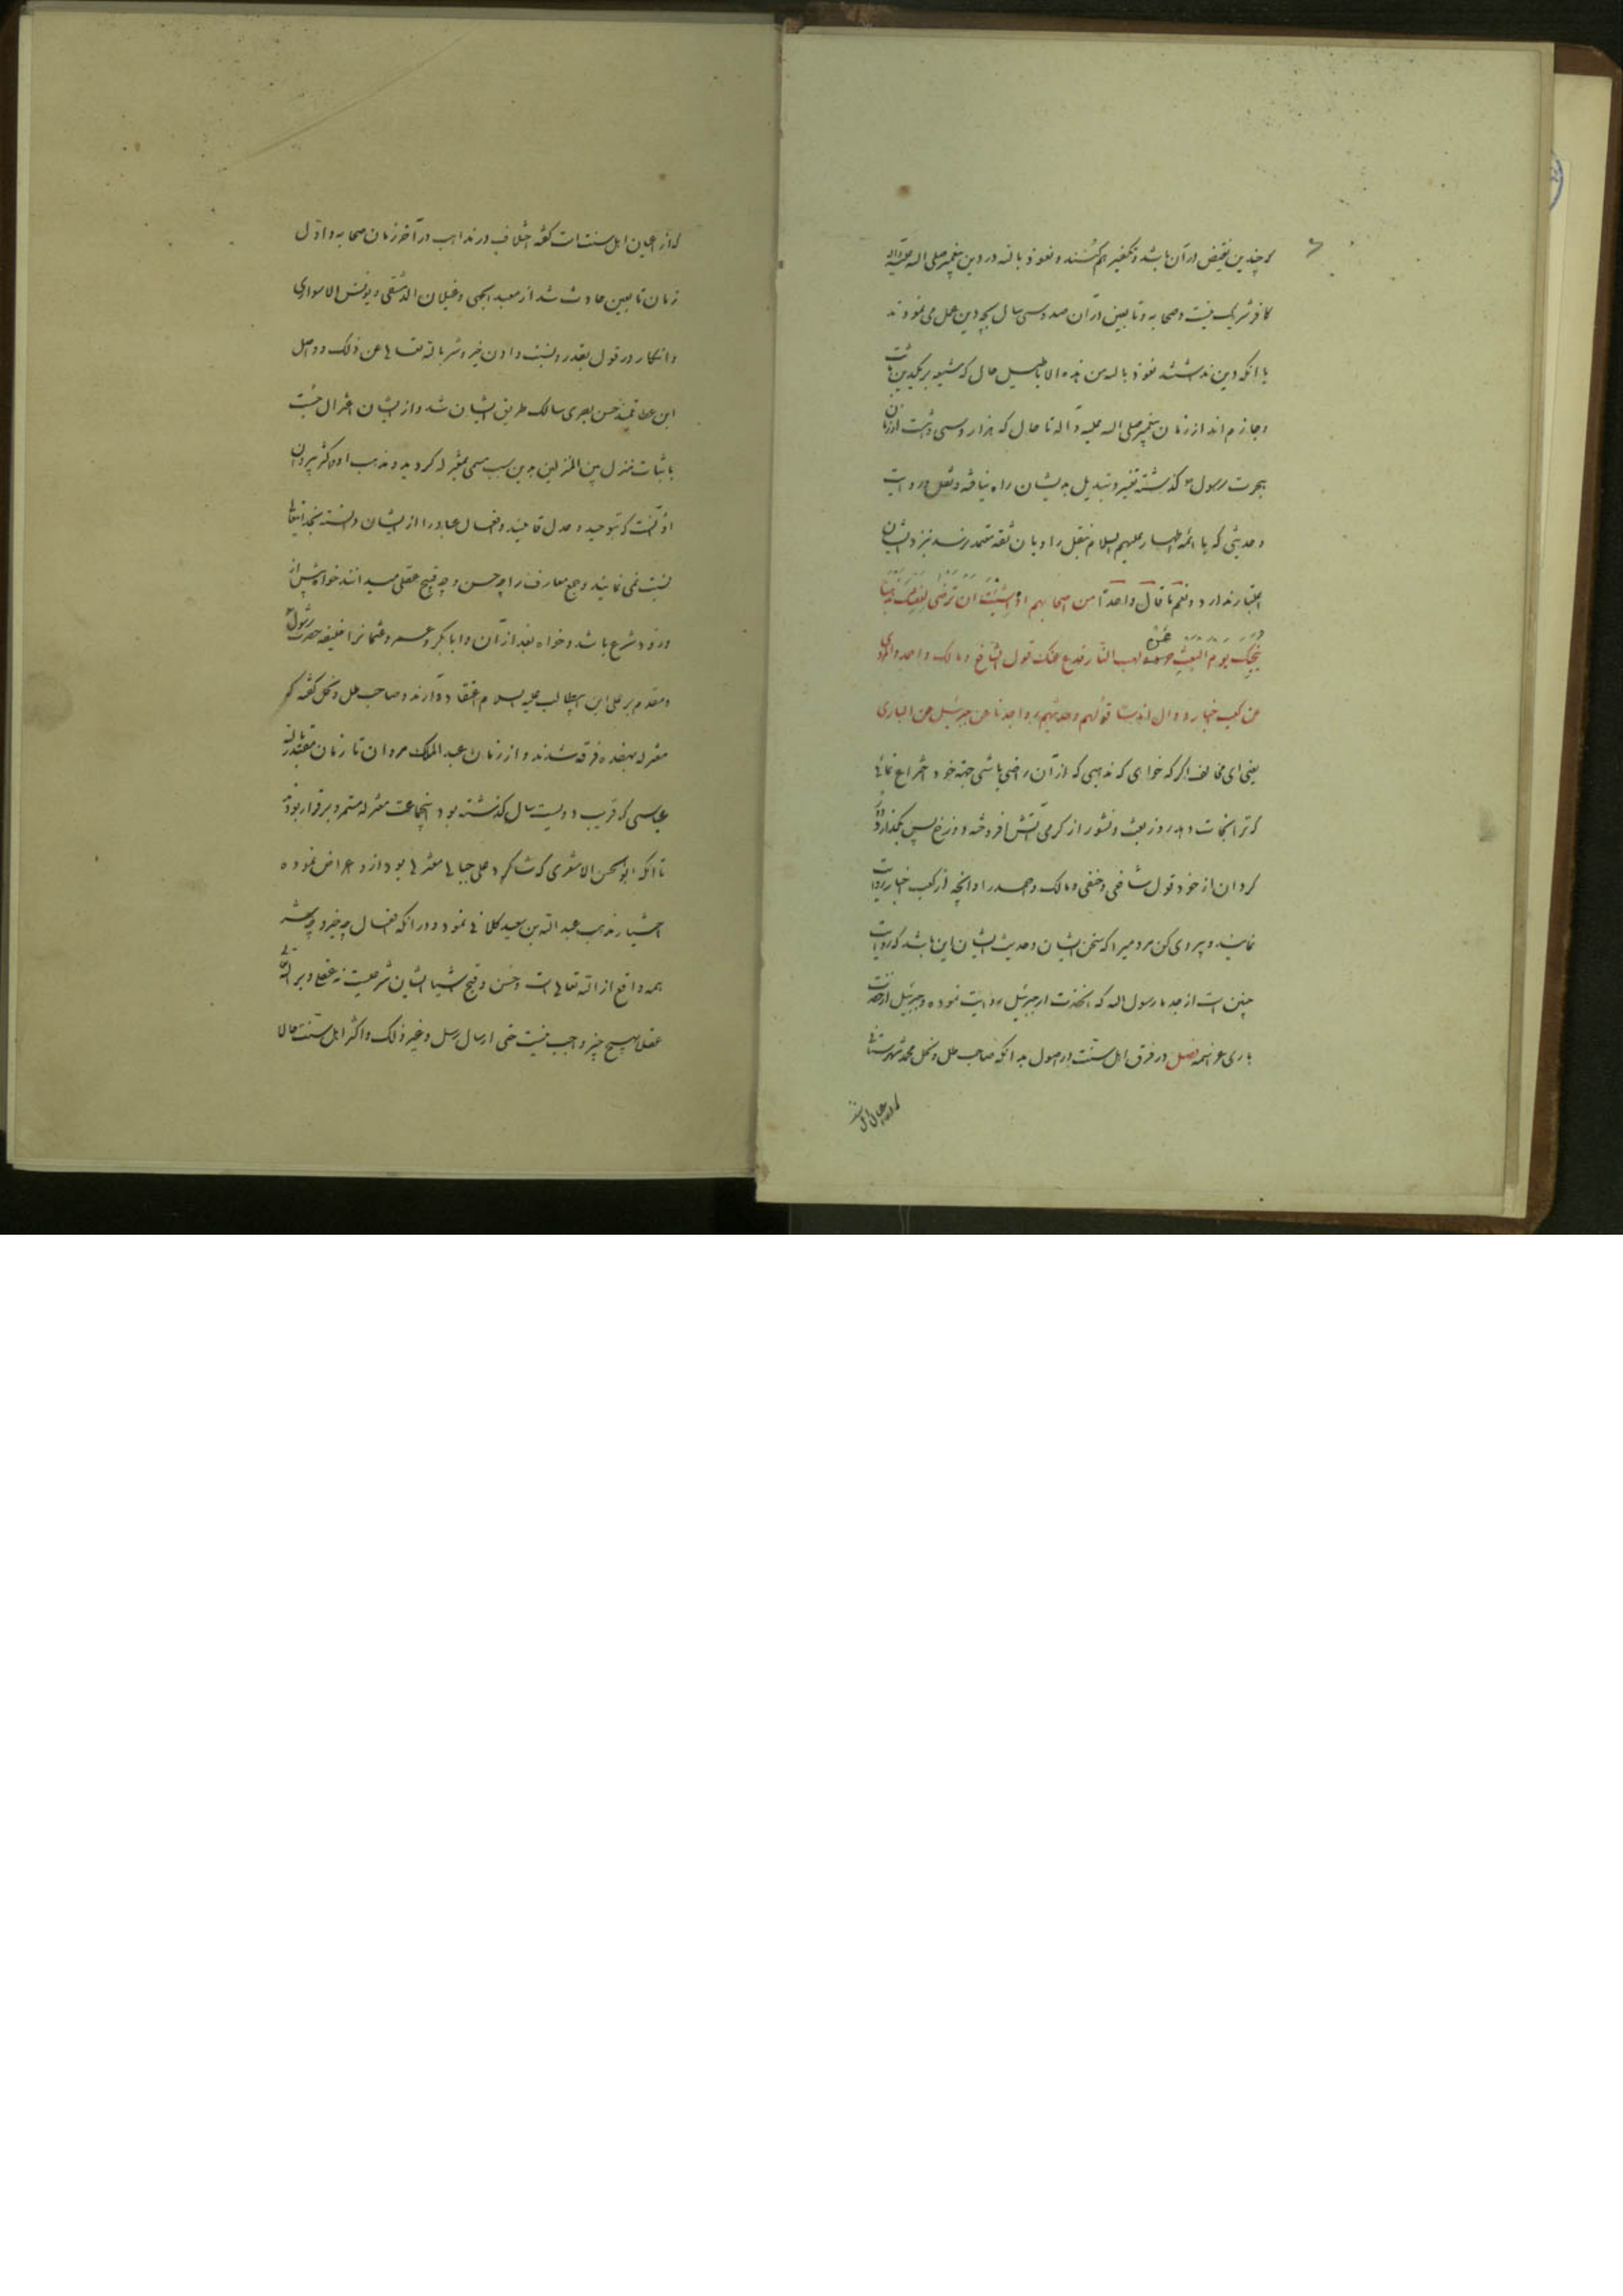 که چندین نقیض در آن باشد و تکفیر هم کنند و نعوذ بالله در دین پیغمبر صلی الله علیه و آله
کافر شریک نیست و صحابه و تابعین در آن صد و سی سال بچه دین عمل می نمودند
یا آنکه دین نداشتند نعوذ بالله من هذه الاباطیل حال که شیعه بر یکدین ثابت
و جازم اند از زمان پیغمبر صلی الله علیه و آله تا حال که هزار و سی و هشت از زمان
هجرت رسول گذشته تغییر و تبدیل بدیشان راه نیافته و نقل و روایت
و حدیثی که با ائمه اطهار علیهم السلام بنقل راویان ثقه معتمد رسد نزد ایشان
اعتبار ندارد و نعم ما قال واحدا من اصحابهم اذا شئت ان ترضی لنفسک مذهبا
ینجیک یوم البعث من لهب النار فدع عنک قول الشافعی و مالک و احمد و المروی
عن کعب احبار و وال اناسا قولهم و حدیثهم روا جدنا عن جبرئیل عن الباری
یعنی ای مخالف اگر که خواهی که مذهبی که از آن راضی باشی جهة خود اختراع نمائی
که ترا نجات دهد روز بعث و نشور از گرمی آتش افروخته دوزخ پس بگذار و دور
گردان از خود قول شافعی و حنفی و مالک و احمد را و آنچه از کعب احبار روایت
نمایند و پیروی کن مردمیرا که سخن ایشان و حدیث ایشان این باشد که روایت
چنین است از جد ما رسول الله که آنحضرت از جبرئیل روایت نموده و جبرئیل از حضرت
باری عز اسمه فصل در فرق اهل سنت در اصول بدانکه صاحب ملل و نحل محمد شهرستانی
که از اعیان اهل سنت
که از اعیان اهل سنت است گفته اختلاف در مذاهب در آخر زمان صحابه و اول
زمان تابعین حادث شد از معبد الجهنی و غیلان الدمشقی و یونس الاسواری
و انکار در قول بقدر و نسبت دادن خیر و شر بالله تعالی عن ذلک و واصل
ابن عطا تلمیذ حسن بصری سالک طریق ایشان شد و از ایشان اعتزال جست
باثبات منزل بین المنزلین بدین سبب مسمی بمعتزله گردید و مذهب او و اکثر پیروان
او آنست که بتوحید و عدل قایلند و افعال عباد را از ایشان دانسته بخدایتعالی
نسبت نمی نمایند و جمع معارف را چه حسن و چه قبیح عقلی میدانند خواه پیش از
ورود شرع باشد و خواه بعد از آن و ابابکر و عمر و عثمانرا خلیفه حضرت رسول
و مقدم بر علی ابن ابیطالب علیه السلام اعتقاد دارند و صاحب ملل و نحل گفته که
معتزله بهفده فرقه شدند و از زمان عبد الملک مروان تا زمان مقتدر بالله
عباسی که قریب دویست سال گذشته بود اینجماعت معتزله مستمر و برقرار بودند
تا آنکه ابو الحسن الاشعری که شاگرد علی جبایی معتزلی بود از و اعراض نموده
اختیار مذهب عبد الله بن سعید کلابی نمود و در آنکه افعال چه خیر و چه شر
همه واقع از الله تعالی است و حسن و قبح اشیا ایشان شرعیست نه عقلی و بر الله تعالی
عقلا هیچ چیز واجب نیست حتی ارسال رسل و غیر ذلک و اکثر اهل سنت حالا